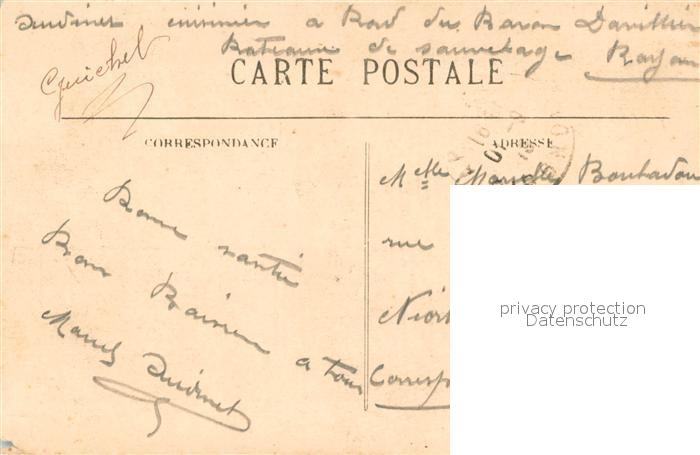 Audinet cuisinier a Bord du Baron Davillier
Bateau de sauvetage Royan
Guichet
CARTE POSTALE
CORRESPONDANCE
ADRESSE
Melle Marcelle Bouhadou
rue
Niort
Corresp
Bonne santé
Bons Baisers
a tous
Marcel Audinet
privacy protection
Datenschutz